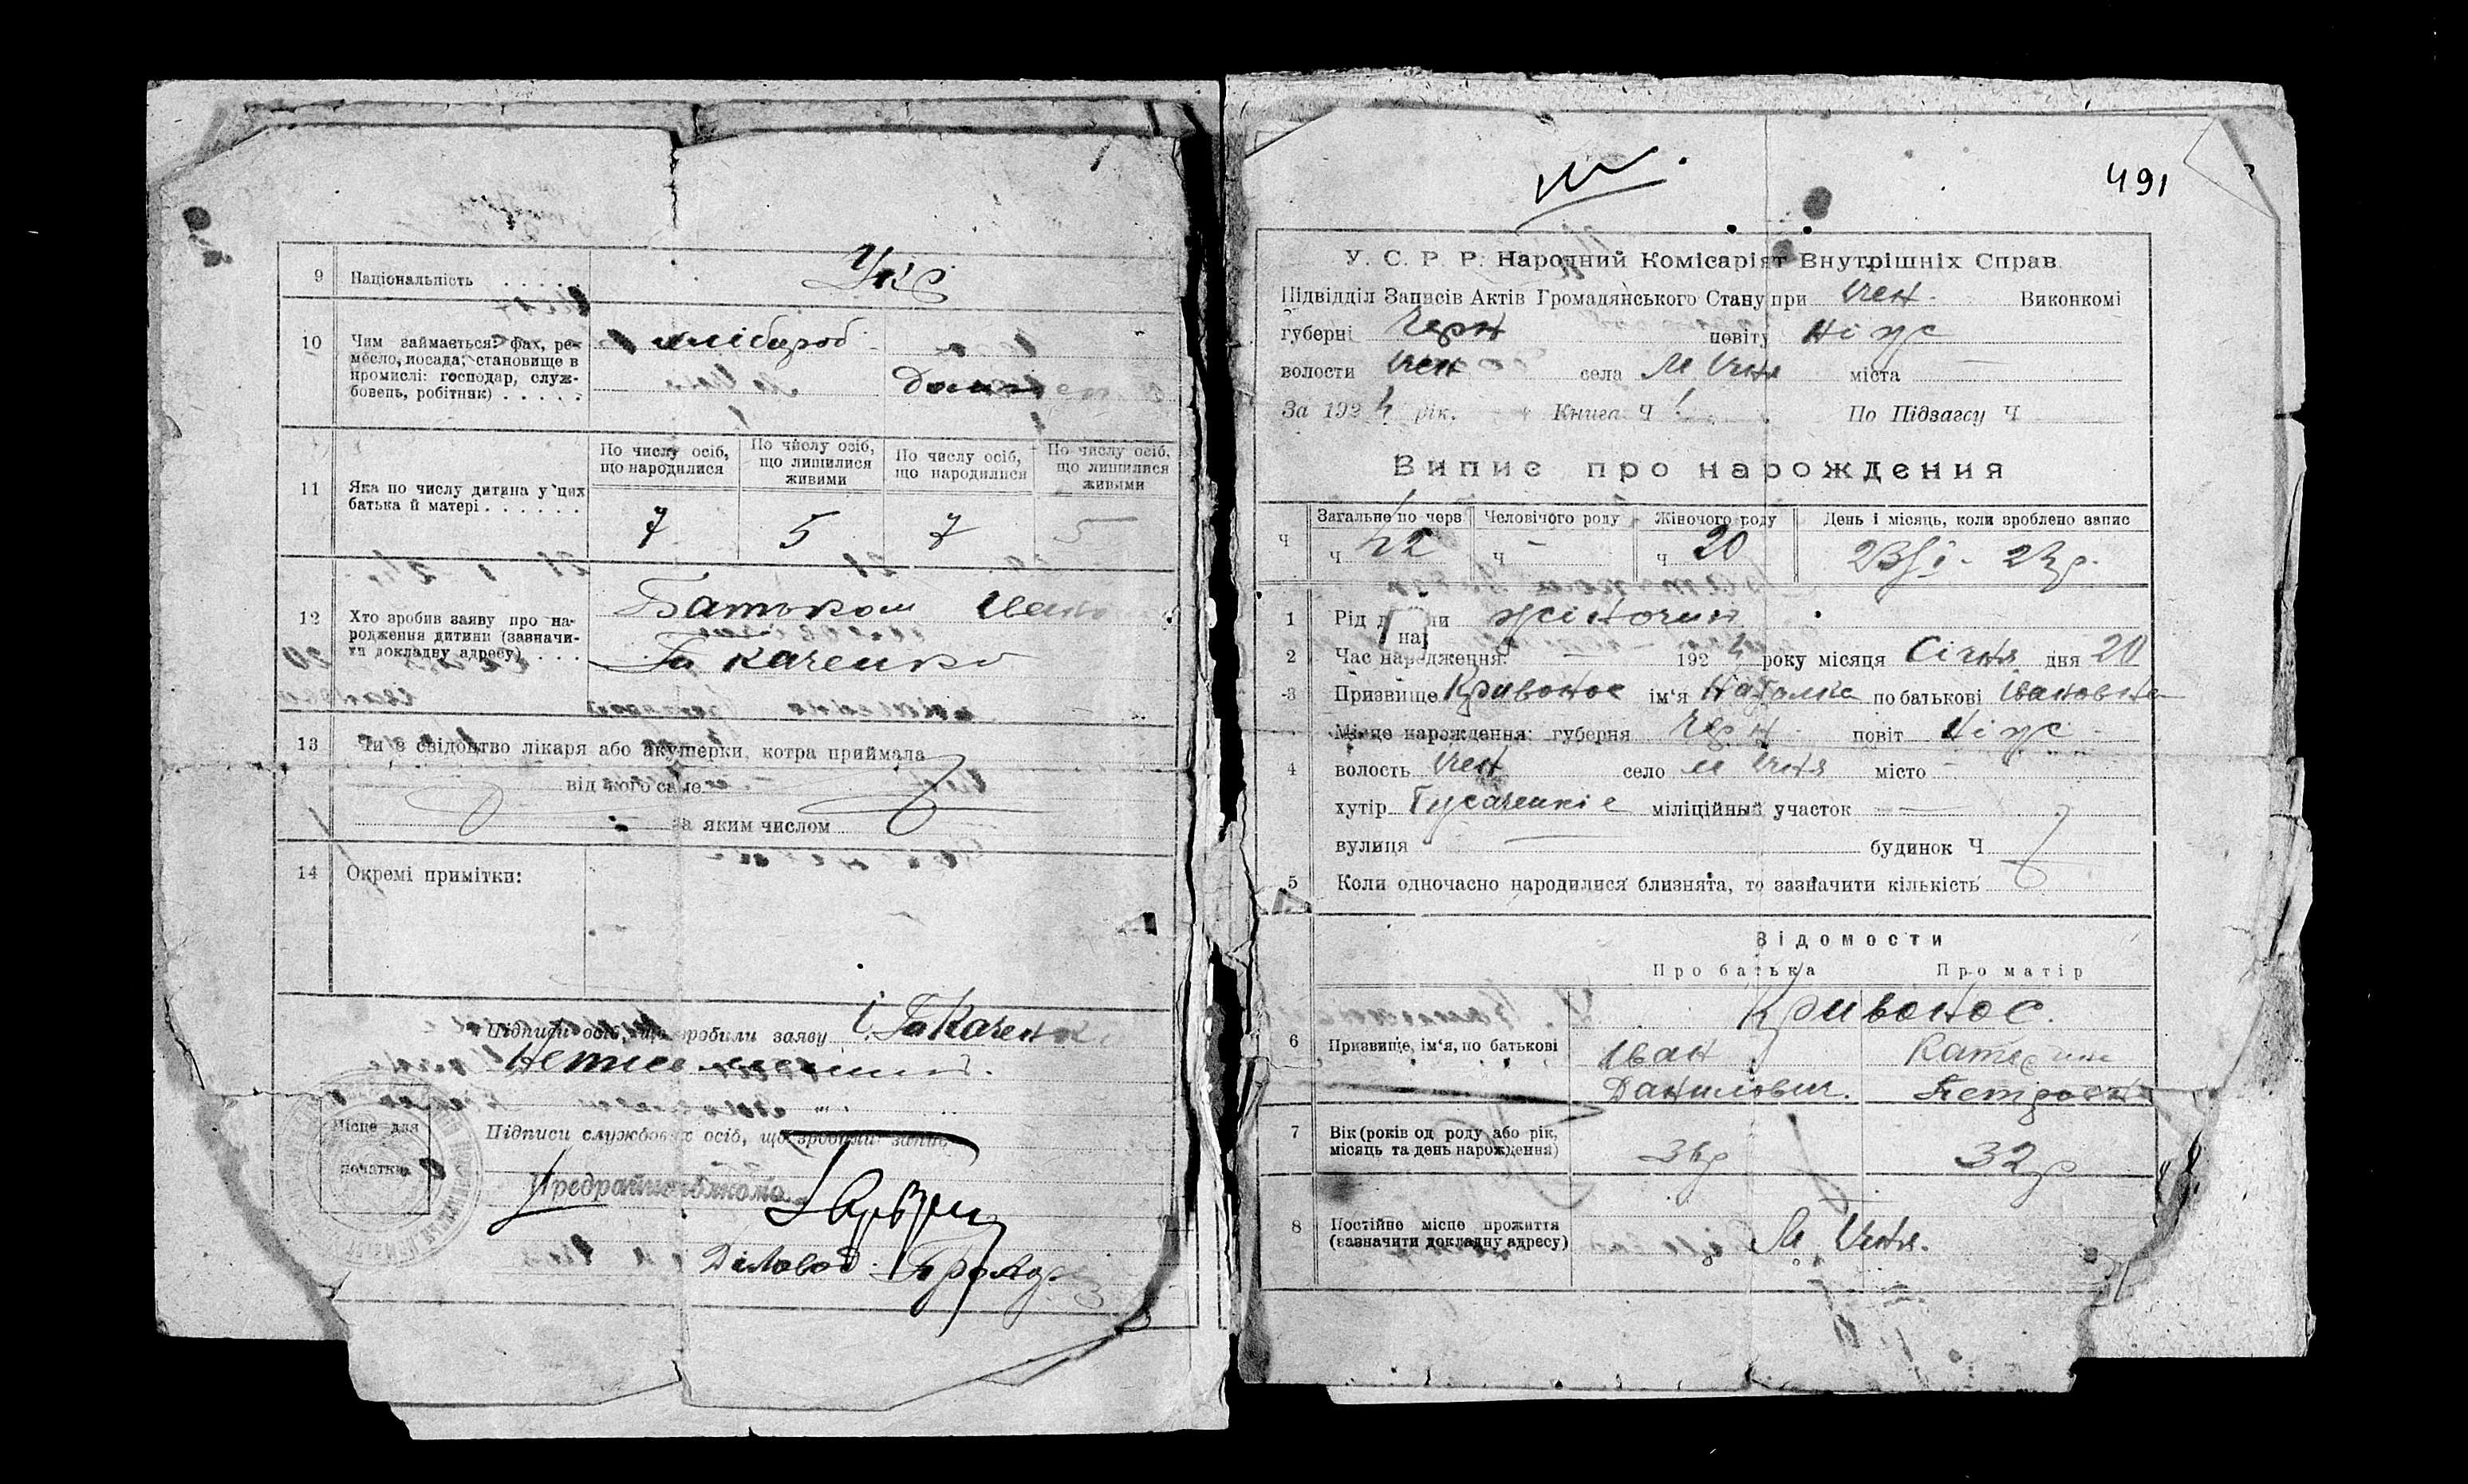 9 Національність . . . . . Укр
10 Чим займається: фах, ре-
месло, посада, становище в
промислі: господар, служ-
бовець, робітник) . . . . .
хлібороб
По числу осіб, що народилися
По числу осіб, що лишилися живими
По числу осіб, що народилися
По числу осіб, що лишилися живими
11 Яка по числу дитина у цих
батька й матері . . . . . .
7 5 7 5
12 Хто зробив заяву про на-
родження дитини (зазначи-
ти докладну адресу) . . .
Батьком Іван
13 Чи є свідоцтво лікаря або акушерки, котра приймала
від кого саме
за яким числом
14 Окремі примітки:
Підписи осіб, що зробили заяву І.
Підписи службових осіб, що зробили запис
Місце для
початки
Предрайвиконкома
Діловод
491
У. С. Р. Р. Народний Комісаріят Внутрішніх Справ
Підвідділ Записів Актів Громадянського Стану при Ічен. Виконкомі
губерні Черн повіту Ніж
волости Ічен села М Ічня міста
За 1924 рік. Книга Ч По Підзагсу Ч
Випис про нарождения
Ч
Загальне по черв Человічого роду Жіночого роду День і місяць, коли зроблено запис
Ч 42 Ч - Ч 20
1 Рід жіночий
2 Час народження: 1924 року місяця Січня дня 20
3 Призвище Кривонос ім'я Наталка по батькові Івановна
Місце нарождення: губерня Черн повіт Ніж
4 волость Ічен село М Ічня місто
хутір міліційный участок
вулиця будинок Ч
5 Коли одночасно народилися близнята, то зазначити кількість
Відомости
Про батька Про матір
Кривонос.
6 Призвище, ім'я, по батькові
Іван Катерина
Данилович. Петровна
7 Вік (років од роду або рік,
місяць та день нарождення)
32р
8 Постійне місце прожиття
(зазначити докладну адресу)
М Ічня.